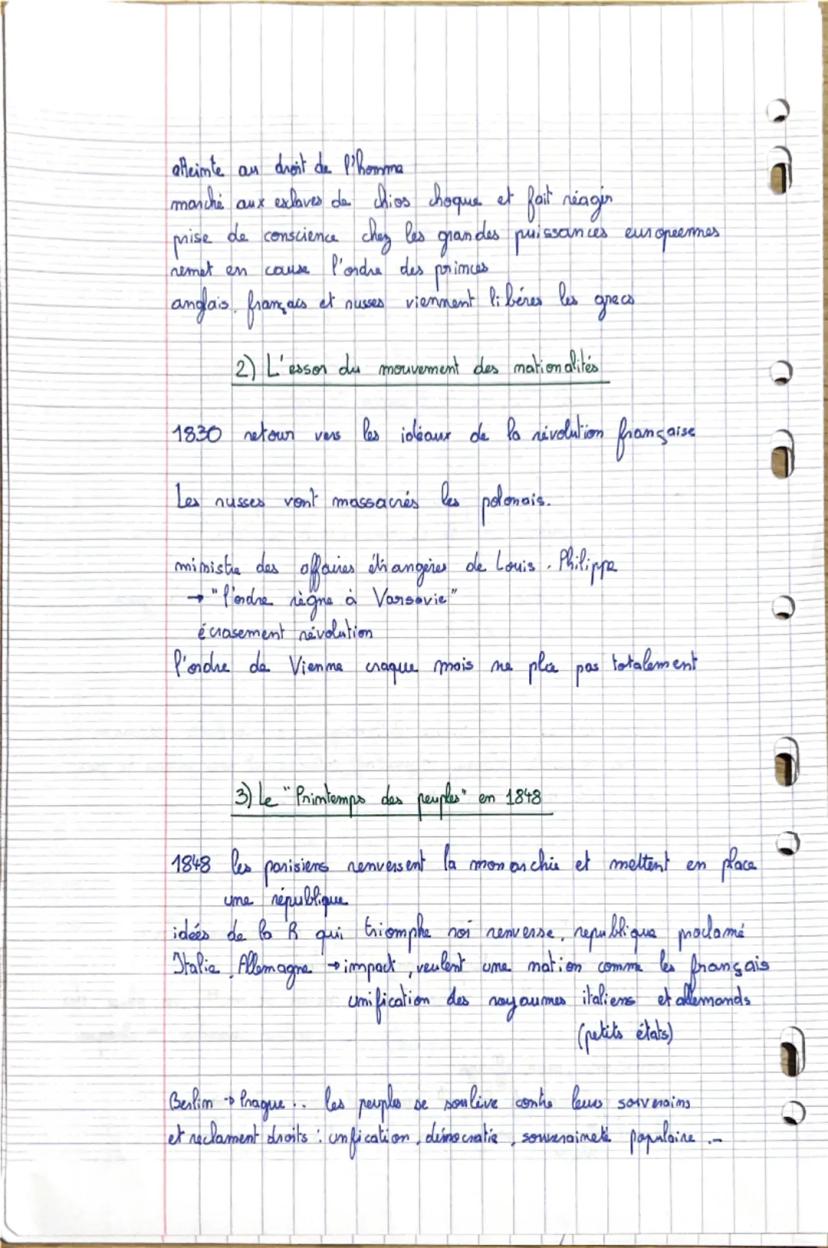 atteinte au droit de l'homme
marché aux esclaves de chios choque et fait réagir
prise de conscience chez les grandes puissances européennes
remet en cause l'ordre des princes
anglais, français et russes viennent libérés les grecs
2) L'essor du mouvement des nationalités
1830 retour vers les idéaux de la révolution française
Les russes vont massacrés les polonais.
ministre des affaires étrangères de Louis-Philippe
→ "l'ordre règne à Varsovie"
écrasement révolution
l'ordre de Vienne craque mais ne plie pas totalement
3) Le "Printemps des peuples" en 1848
1848 les parisiens renversent la monarchie et mettent en place
une république
idées de la R qui triomphe roi renverse, republique proclamé
Italie, Allemagne → impact, veulent une nation comme les français
unification des royaumes italiens et allemands
(petits états)
Berlin → Prague.. les peuples se soulève contre leurs souverains
et reclament droits : unfication, démocratie, souveraineté populaire...